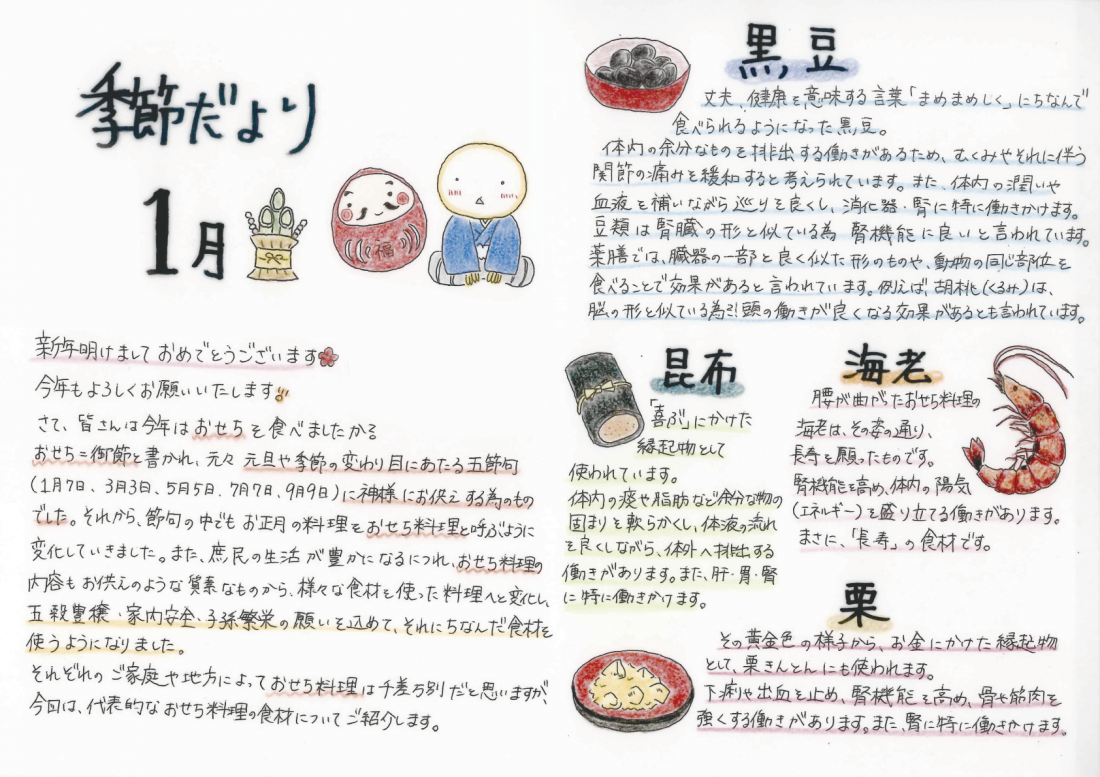 季節だより
1月
福
新年明けましておめでとうございます
今年もよろしくお願いいたします
さて、皆さんは今年はおせちを食べましたか?
おせち=御節と書かれ、元々元旦や季節の変わり目にあたる五節句
(1月7日、3月3日、5月5日、7月7日、9月9日)に神様にお供えする為のもの
でした。それから、節句の中でもお正月の料理をおせち料理と呼ぶように
変化していきました。また、庶民の生活が豊かになるにつれ、おせち料理の
内容もお供えのような質素なものから、様々な食材を使った料理へと変化し、
五穀豊穣・家内安全・子孫繁栄の願いを込めて、それにちなんだ食材を
使うようになりました。
それぞれのご家庭や地方によっておせち料理は千差万別だと思いますが、
今回は、代表的なおせち料理の食材についてご紹介します。
黒豆
丈夫、健康を意味する言葉「まめまめしく」にちなんで
食べられるようになった黒豆。
体内の余分なものを排出する働きがあるため、むくみやそれに伴う
関節の痛みを緩和すると考えられています。また、体内の潤いや
血液を補いながら巡りを良くし、消化器・腎に特に働きかけます。
豆類は腎臓の形と似ている為腎機能に良いと言われています。
薬膳では、臓器の一部と良く似た形のものや、動物の同じ部位を
食べることで効果があると言われています。例えば、胡桃(くるみ)は、
脳の形と似ている為、頭の働きが良くなる効果があるとも言われています。
昆布
「喜ぶ」にかけた
縁起物として
使われています。
体内の痰や脂肪など余分な物の
固まりを軟らかくし、体液の流れ
を良くしながら、体外へ排出する
働きがあります。また、肝・胃・腎
に特に働きかけます。
海老
腰が曲がたおせち料理の
海老は、その姿の通り、
長寿を願ったものです。
腎機能を高め、体内の陽気
(エネルギー)を盛り立てる働きがあります。
まさに、「長寿」の食材です。
栗
その黄金色の様子から、お金にかけた縁起物
として、栗きんとんにも使われます。
下痢や出血を止め、腎機能を高め、骨や筋肉を
強くする働きがあります。また、腎に特に働きかけます。